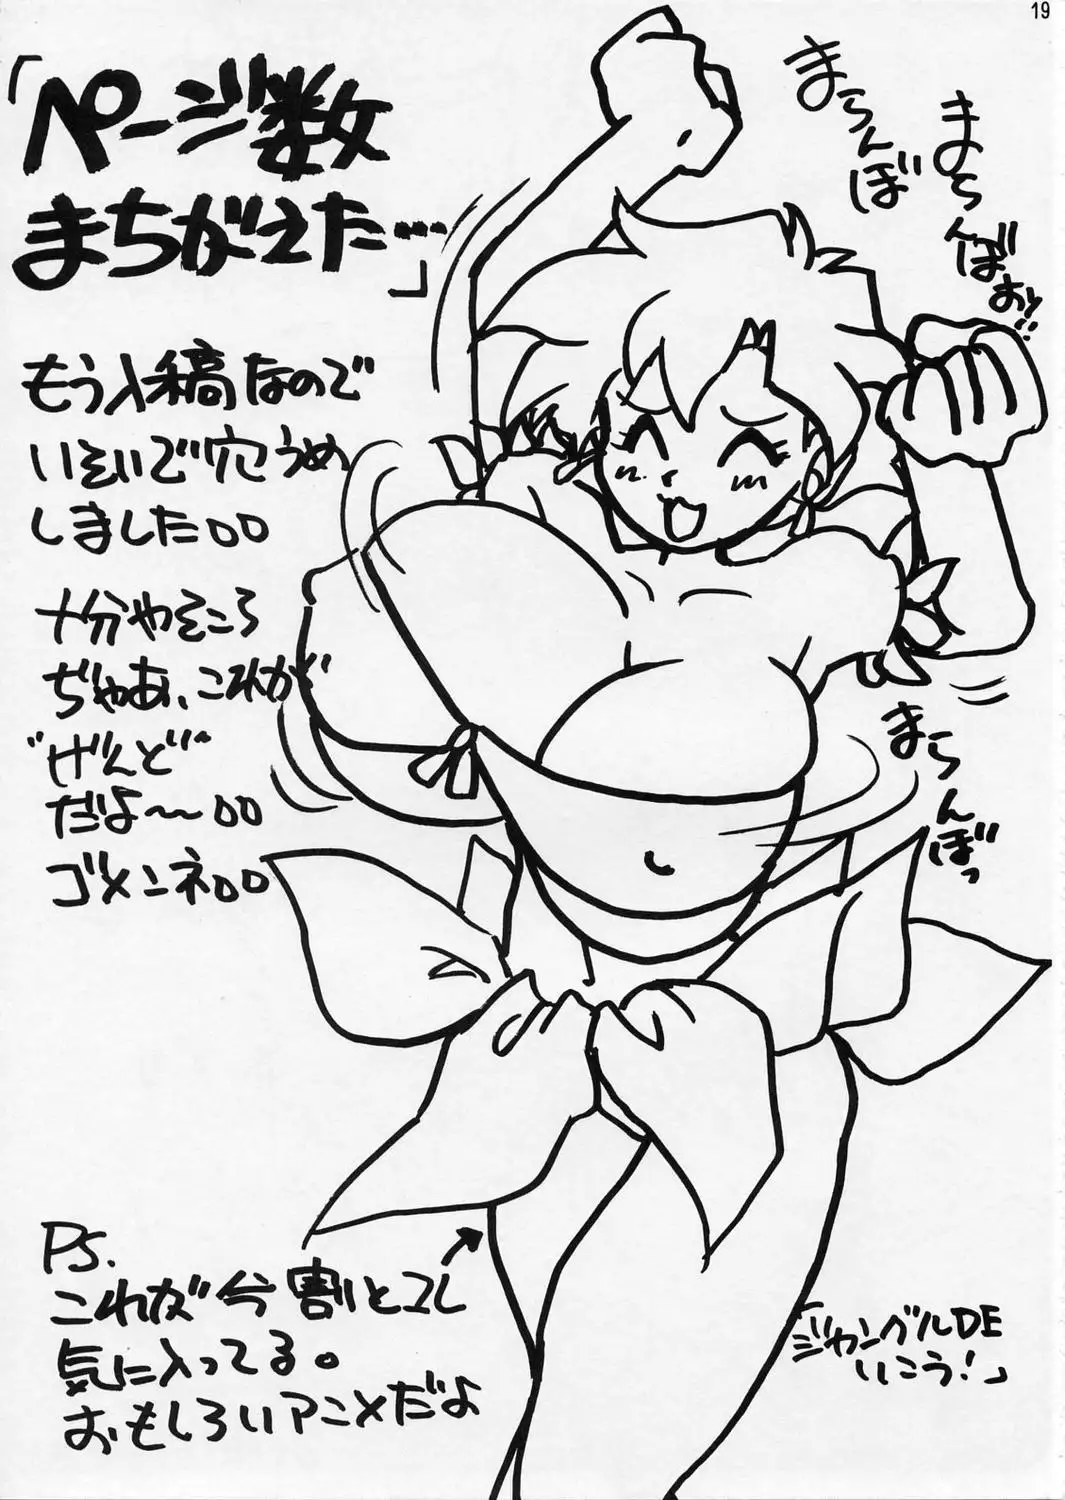 19
「ページ数
まちがえた…」
もう入稿なので
いそいで穴うめ
しました。。
十分やそころ
ぢゃあ、これが
"げんど"
だよ〜。。
ゴメンネ。。
まらんぼ
まらんぼぉっ!!
まらんぼっ
PS.
これが今割とコレ
気に入ってる。
おもしろいアニメだよ
「ジャングルDE
いこう!」